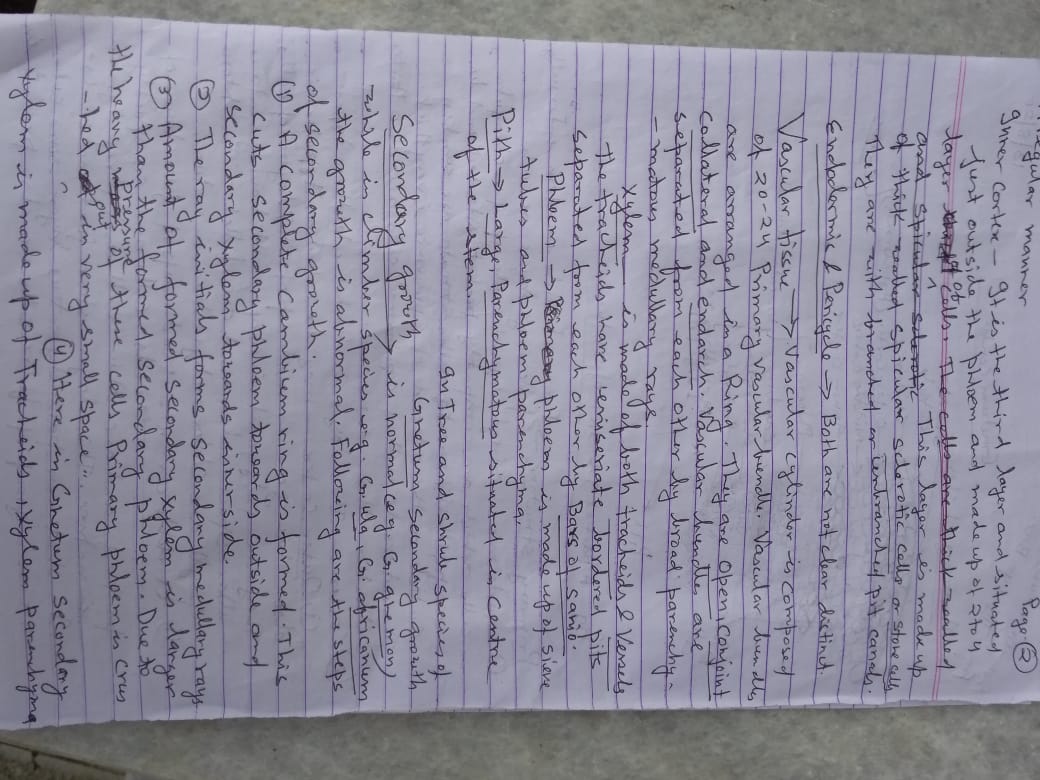 Page ②
Irregular manner
Inner cortex - It is the third layer and situated
Just outside the phloem and made up of 2 to 4
layer of cells. The cells are thick-walled
and spicular sclerotic. This layer is made up
of thick walled spicular sclerotic cells or stone cells
They are with branched or unbranched pit canals.
Endodermis & Pericycle → Both are not clear distinct.
Vascular tissue → Vascular cylinder is composed
of 20-24 Primary vascular bundle. Vascular bundles
are arranged in a Ring. They are open, conjoint
collateral and endarch. Vascular bundles are
separated from each other by broad parenchy-
- matous medullary rays.
Xylem is made of both tracheids & Vessels
the tracheids have uniseriate bordered pits
separated from each other by Bars of sanio.
Phloem → phloem is made up of sieve
tubes and phloem parenchyma.
Pith → Large, Parenchymatous situated in centre
of the stem.
Secondary growth → In Tree and shrub species of
Gnetum secondary growth
is normal eg. G. gnemon
while in climber species eg. G. ula, G. africanum
the growth is abnormal. Following are the steps
of secondary growth.
① A complete cambium ring is formed. This
cuts secondary phloem towards outside and
secondary xylem towards inner side.
② The ray initials forms secondary medullary rays
③ Amount of formed secondary xylem is larger
than the formed secondary phloem. Due to
the heavy pressure of these cells Primary phloem is crus
- hed out in very small space.
④ Here in Gnetum secondary
xylem is made up of Tracheids, xylem parenchyma